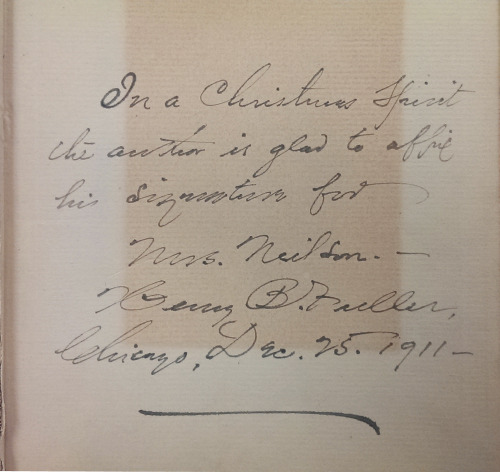 In a Christmas Spirit
the author is glad to affix
his signature for
Mrs. Neilson. -
Henry B. Fuller,
Chicago, Dec. 25. 1911-